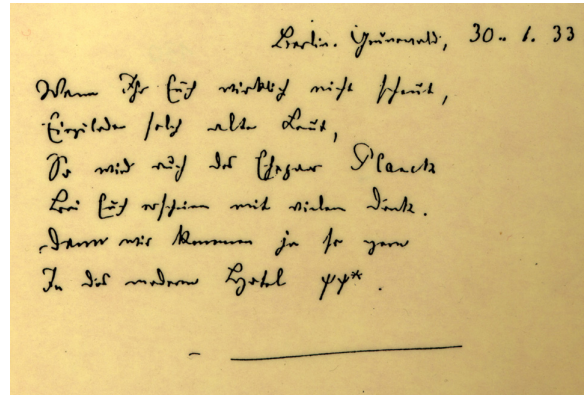 Berlin-Grunewald, 30. 1. 33
Wenn Ihr Euch wirklich nicht scheut,
Einzuladen solch alte Leut,
So wird auch das Ehepaar Planck
Bei Euch erscheinen mit vielem Dank.
Denn wir kommen ja so gern
In das moderne Hotel ψψ*.